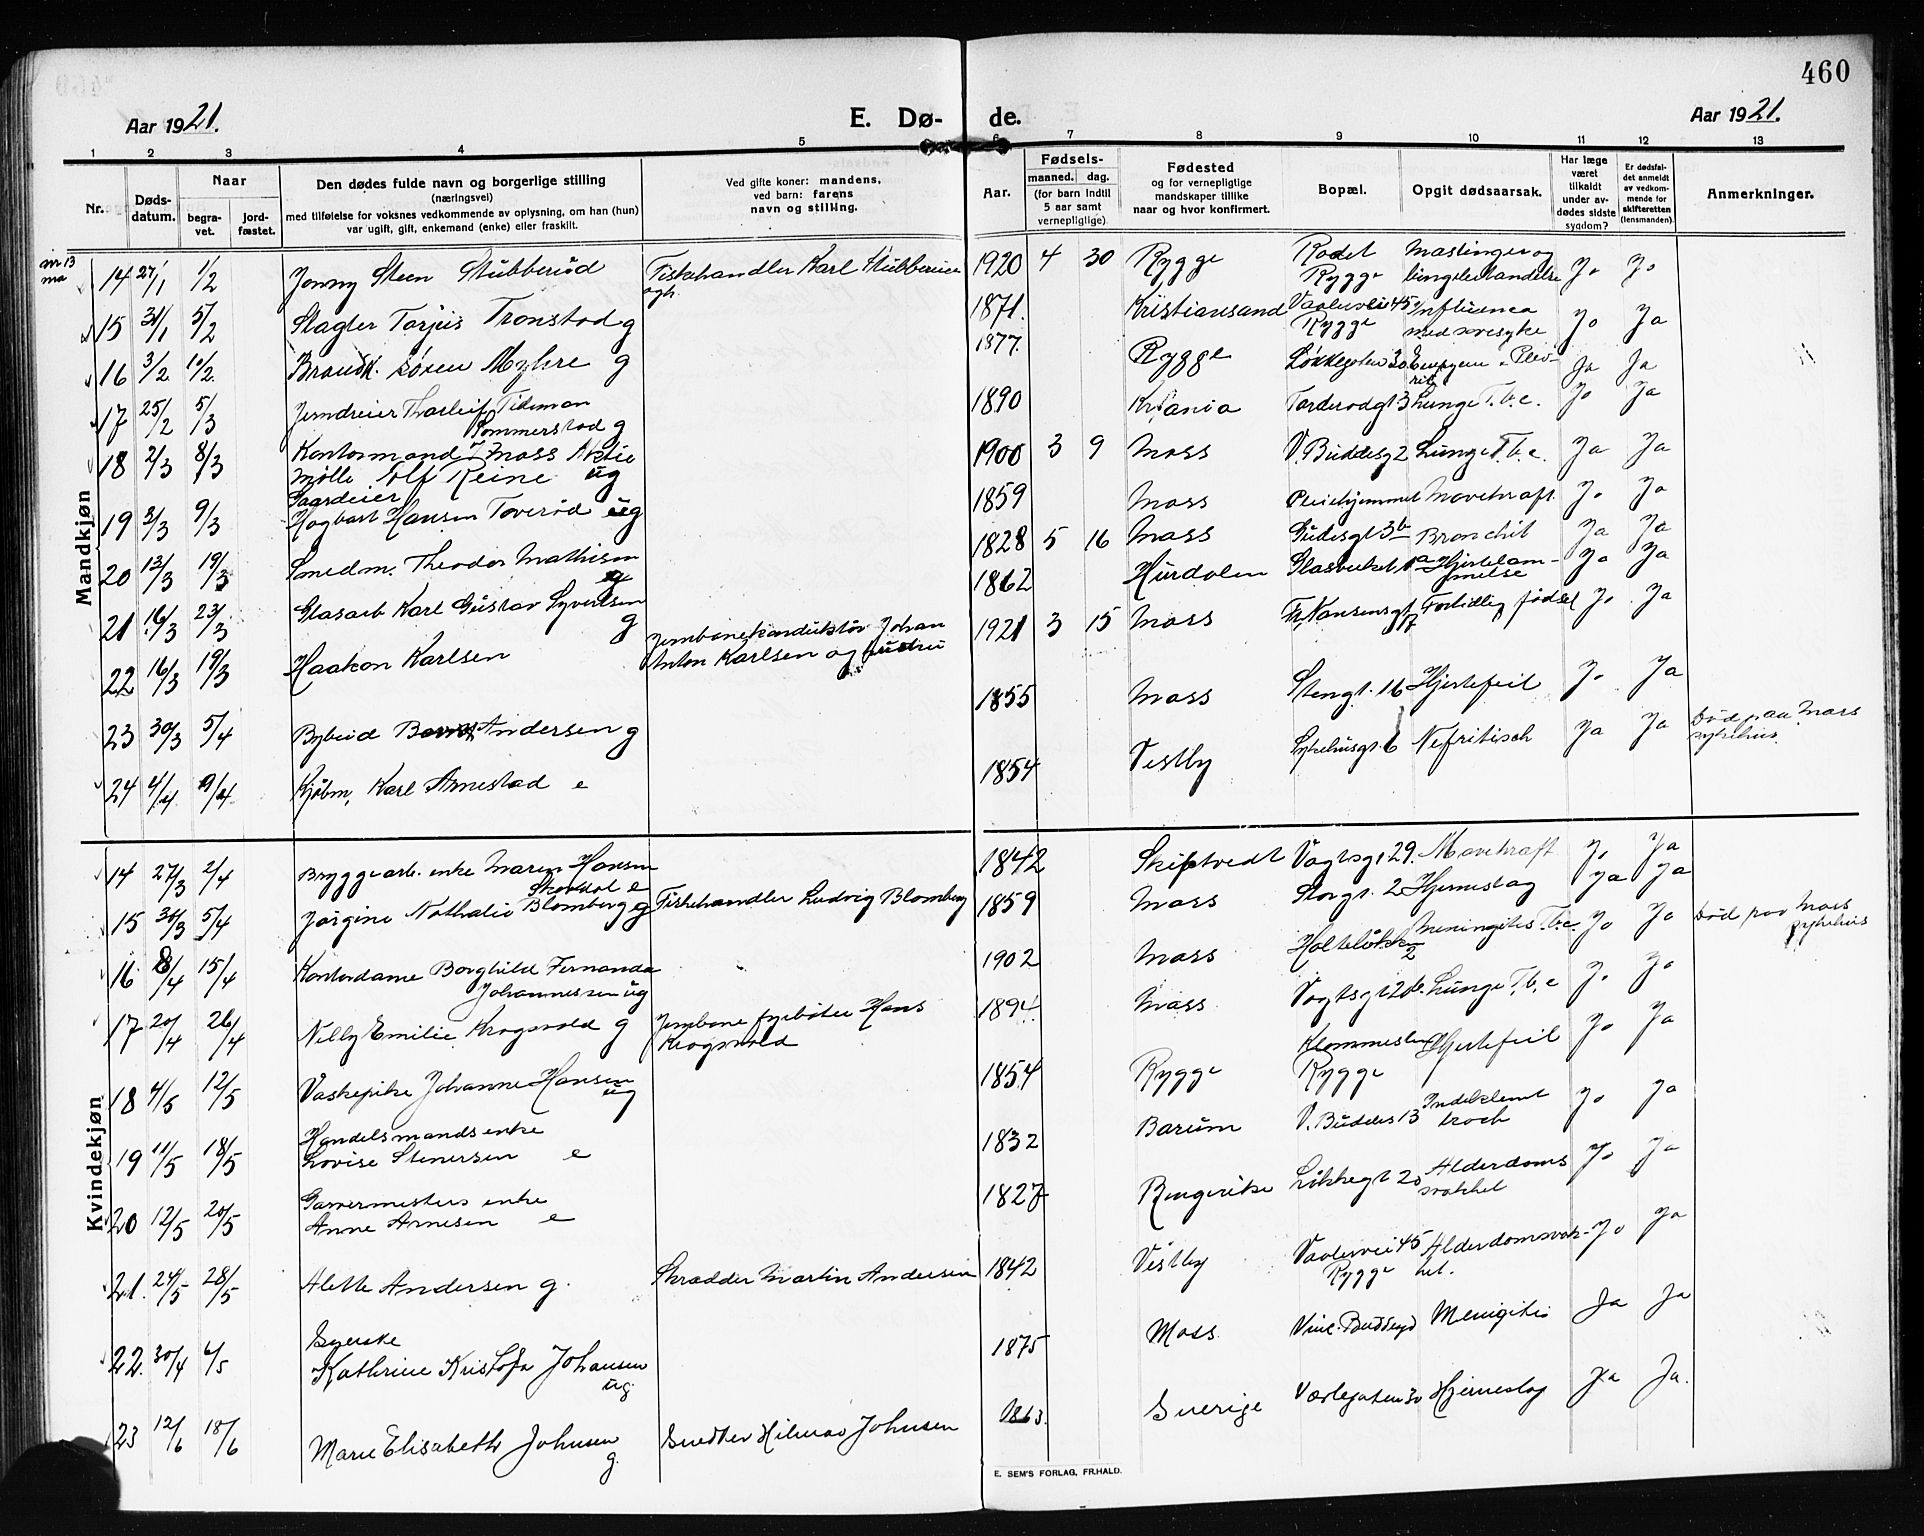 460
Aar 1921.
E. Dø- de.
Aar 1921.
1 2 3 4 5 6 7 8 9 10 11 12 13
Nr.
Døds-
datum.
Naar
begra-
vet.
jord-
fæstet.
Den dødes fulde navn og borgerlige stilling
(næringsvei)
med tilføielse for voksnes vedkommende av oplysning, om han (hun)
var ugift, gift, enkemand (enke) eller fraskilt.
Ved gifte koner: mandens,
ved barn: farens
navn og stilling.
Aar.
Fødsels-
maaned. dag.
(for barn indtil
5 aar samt
vernepligtige)
Fødested
og for vernepligtige
mandskaper tillike
naar og hvor konfirmert.
Bopæl.
Opgit dødsaarsak.
Har læge
været
tilkaldt
under av-
dødes sidste
sygdom?
Er dødsfal-
det anmeldt
av vedkom-
mende for
skifteretten
(lensmanden).
Anmerkninger.
Mandkjøn
nr 13
14 27/1 1/2 Jonny Steen Stubberud Fiskehandler Karl Stubberud 1920 4 30 Rygge Rodet Mæslinger og
Rygge Ja Ja
15 31/1 5/2 Slagter Torjeis Tronstad g 1871. Kristiansand Vaalerveie 45 Influensa
Rygge med Ja Ja
16 3/2 10/2 Søren Myhre g 1877. Rygge 30 Empyem Ja Ja
17 25/2 5/3 Jerndreier Thorleif Tideman
Sommerstad g 1890 Kr.ania Torderodgt 3 Lunge T.b.c. Ja Ja
18 2/3 8/3 Kontormand i Moss Aktie
mølle Rolf Reine ug 1900 3 9 Moss V. Buddesg 2 Lunge T.b.c. Ja Ja
19 3/3 9/3 Gaardeier
Hagbart Hansen Toverød ug 1859 Moss Pleiehjemmet Mavekraft Ja Ja
20 13/3 19/3 Smedm. Theodor Mathisen 1828 5 16 Moss Gudesgt 3b Bronchit Ja Ja
21 16/3 23/3 Glasarb Karl Gustav Syvertsen g 1862 Hurdalen Glasverket 1a Hjertelam-
melse Ja Ja
22 16/3 19/3 Haakon Karlsen Jernbanekonduktør Johan
Anton Karlsen og hustru 1921 3 15 Moss Fr. Nansensgt Fortidlig fødsel Ja Ja
23 30/3 5/4 Bybud Andersen g 1855 Moss Stengt. 16 Hjertefeil Ja Ja
24 4/4 9/4 Kjøbm, Karl Arnestad e 1854 Vestby Sykehusgt. 6 Nefritisch Ja Ja Død paa Moss
sykehus.
Kvindekjøn
14 27/3 2/4 Bryggearb. enke Maren Hansen
Skovdal e 1842 Skiptvedt Vogtsgt 29. Mavekraft Ja Ja
15 30/3 5/4 Jørgine Nathalie Blomberg g Fiskehandler Ludvig Blomberg 1859 Moss Storgt. 2 Hjerneslag Ja Ja
16 8/4 15/4 Kontordame Borghild Fernanda
Johannessen ug 1902 Moss Holteløkken
2 Meningites T.b.c. Ja Ja Død paa Moss
sykehus
17 20/4 26/4 Nelly Emilie Krogsvold g Jernbane fyrbøter Hans
Krogsvold 1894 Moss Vogtsgt 20b. Lunge T.b.c Ja Ja
18 4/5 12/5 Vaskepike Johanne Hansen
ug 1854 Rygge
Rygge Hjertefeil Ja Ja
19 11/5 18/5 Handelsmands enke
Lovise Stenersen e 1832 Barum V. Buddes 13 Indeklemt
brock Ja Ja
20 12/5 20/5 Garvermesters enke
Anne Arnesen e 1827 Ringerike Løkkegt 20 Alderdoms
svakhet Ja Ja
21. 24/5 28/5 Alette Andersen g. Skrædder Martin Andersen 1842 Vestby Vaalerveie 45
Rygge Alderdomsvak-
het. Ja Ja
22. 30/4 6/5 Syerske
Kathrine Kristofa Johansen
ug. 1875 Moss. Vinc. Buddesgd Menigitis Ja Ja
23 12/6 18/6 Marie Elisabeth Johnsen
g. Snedker Hilmar Johnsen 1863. Sverige Værlegaten 30 Hjerneslag Ja Ja.
E. SEM'S FORLAG, FR.HALD.